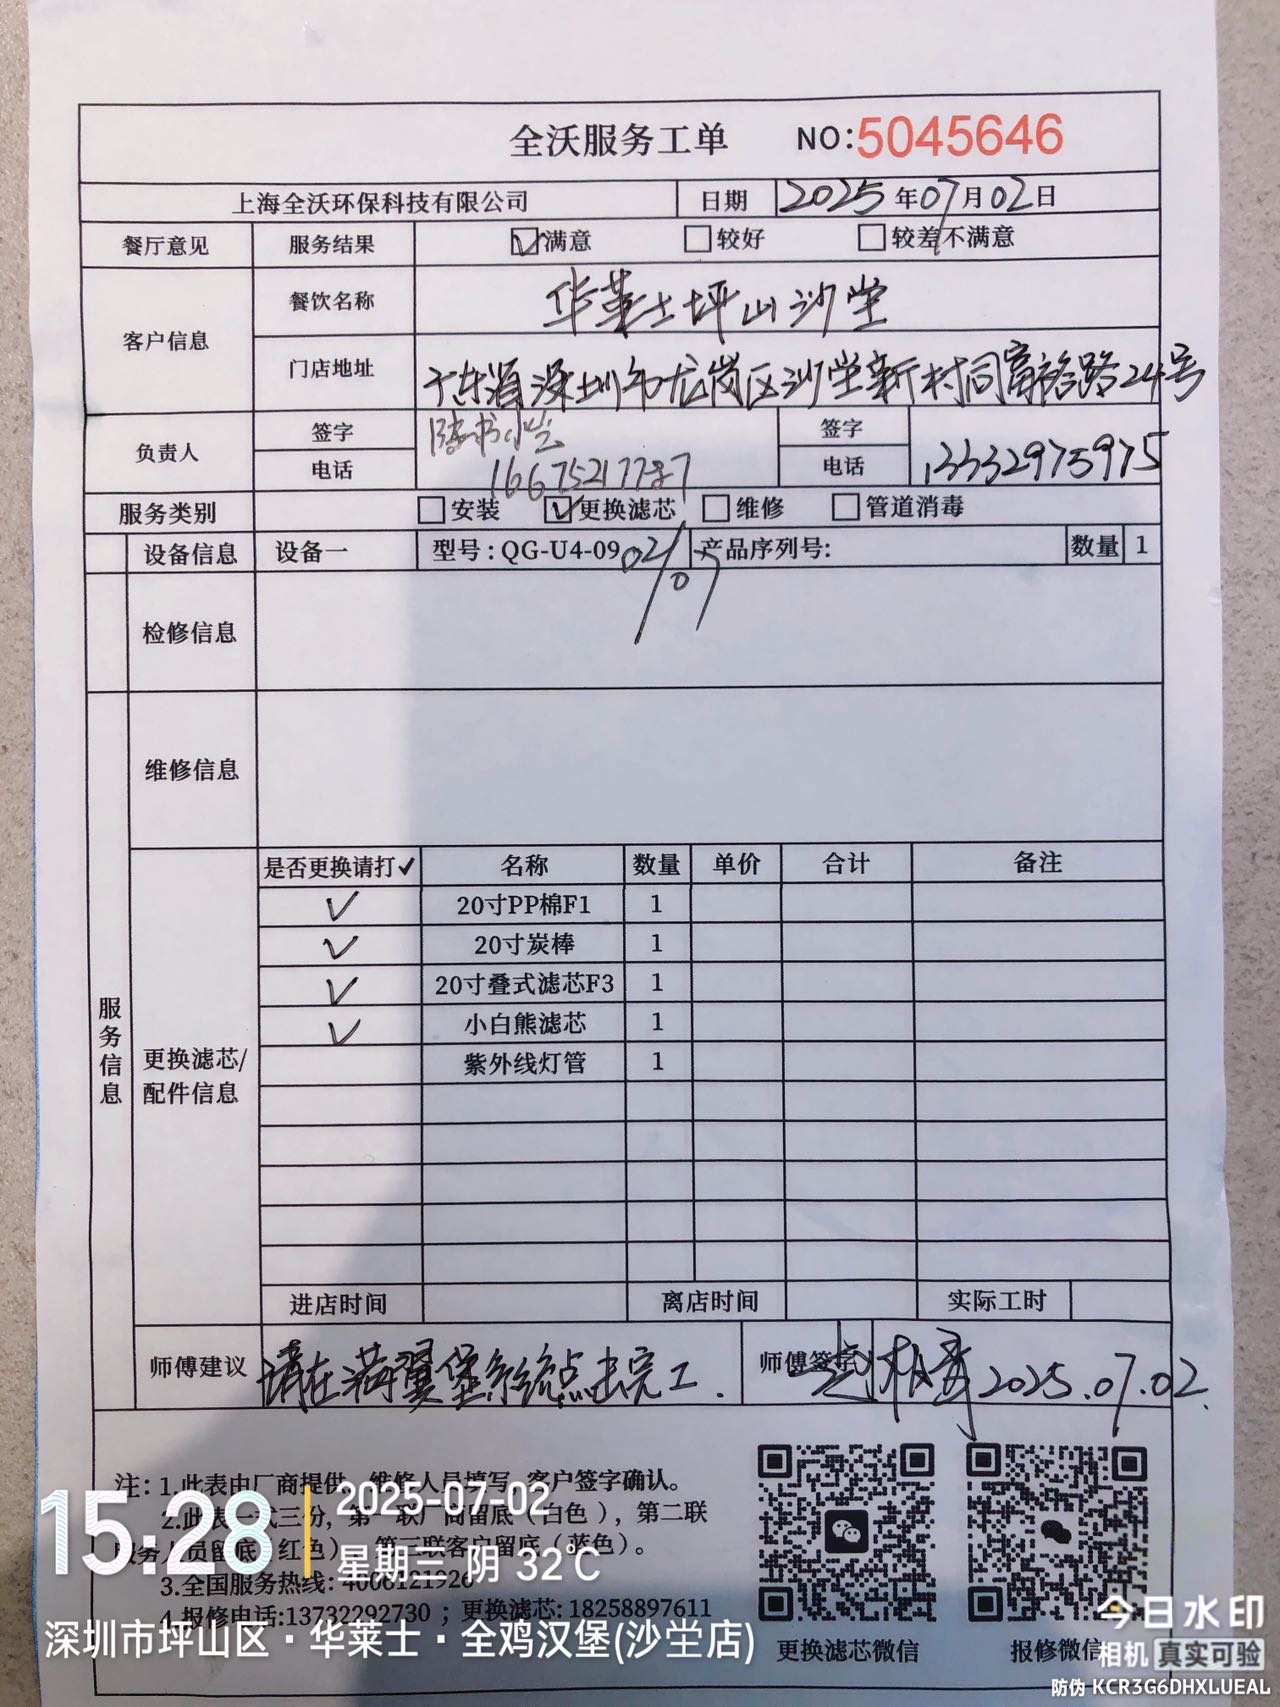 全沃服务工单 NO:5045646
上海全沃环保科技有限公司 日期 2025年07月02日
餐厅意见 服务结果 ☑满意 □较好 □较差不满意
客户信息 餐饮名称 华莱士坪山沙坣
门店地址 深圳市龙岗区沙坣新村同富裕路24号
负责人 签字 签字
电话 电话 13332975975
服务类别 □安装 ☑更换滤芯 □维修 □管道消毒
设备信息 设备一 型号:QG-U4-09 产品序列号: 数量 1
02/07
检修信息
维修信息
服务信息
更换滤芯/
配件信息
是否更换请打✓ 名称 数量 单价 合计 备注
✓ 20寸PP棉F1 1
✓ 20寸炭棒 1
✓ 20寸叠式滤芯F3 1
✓ 小白熊滤芯 1
紫外线灯管 1
进店时间 离店时间 实际工时
师傅建议 请在满翼堡系统点击完工. 师傅签字 2025.07.02.
注: 1.此表由厂商提供,维修人员填写,客户签字确认。
2.此表一式三份,第一联厂商留底(白色),第二联
服务人员留底(红色),第三联客户留底(蓝色)。
3.全国服务热线: 4006121926
4.报修电话:13732292730 ; 更换滤芯: 18258897611
更换滤芯微信 报修微信
15:28
2025-07-02
星期三 阴 32℃
深圳市坪山区·华莱士·全鸡汉堡(沙坣店)
今日水印
相机 真实可验
防伪 KCR3G6DHXLUEAL